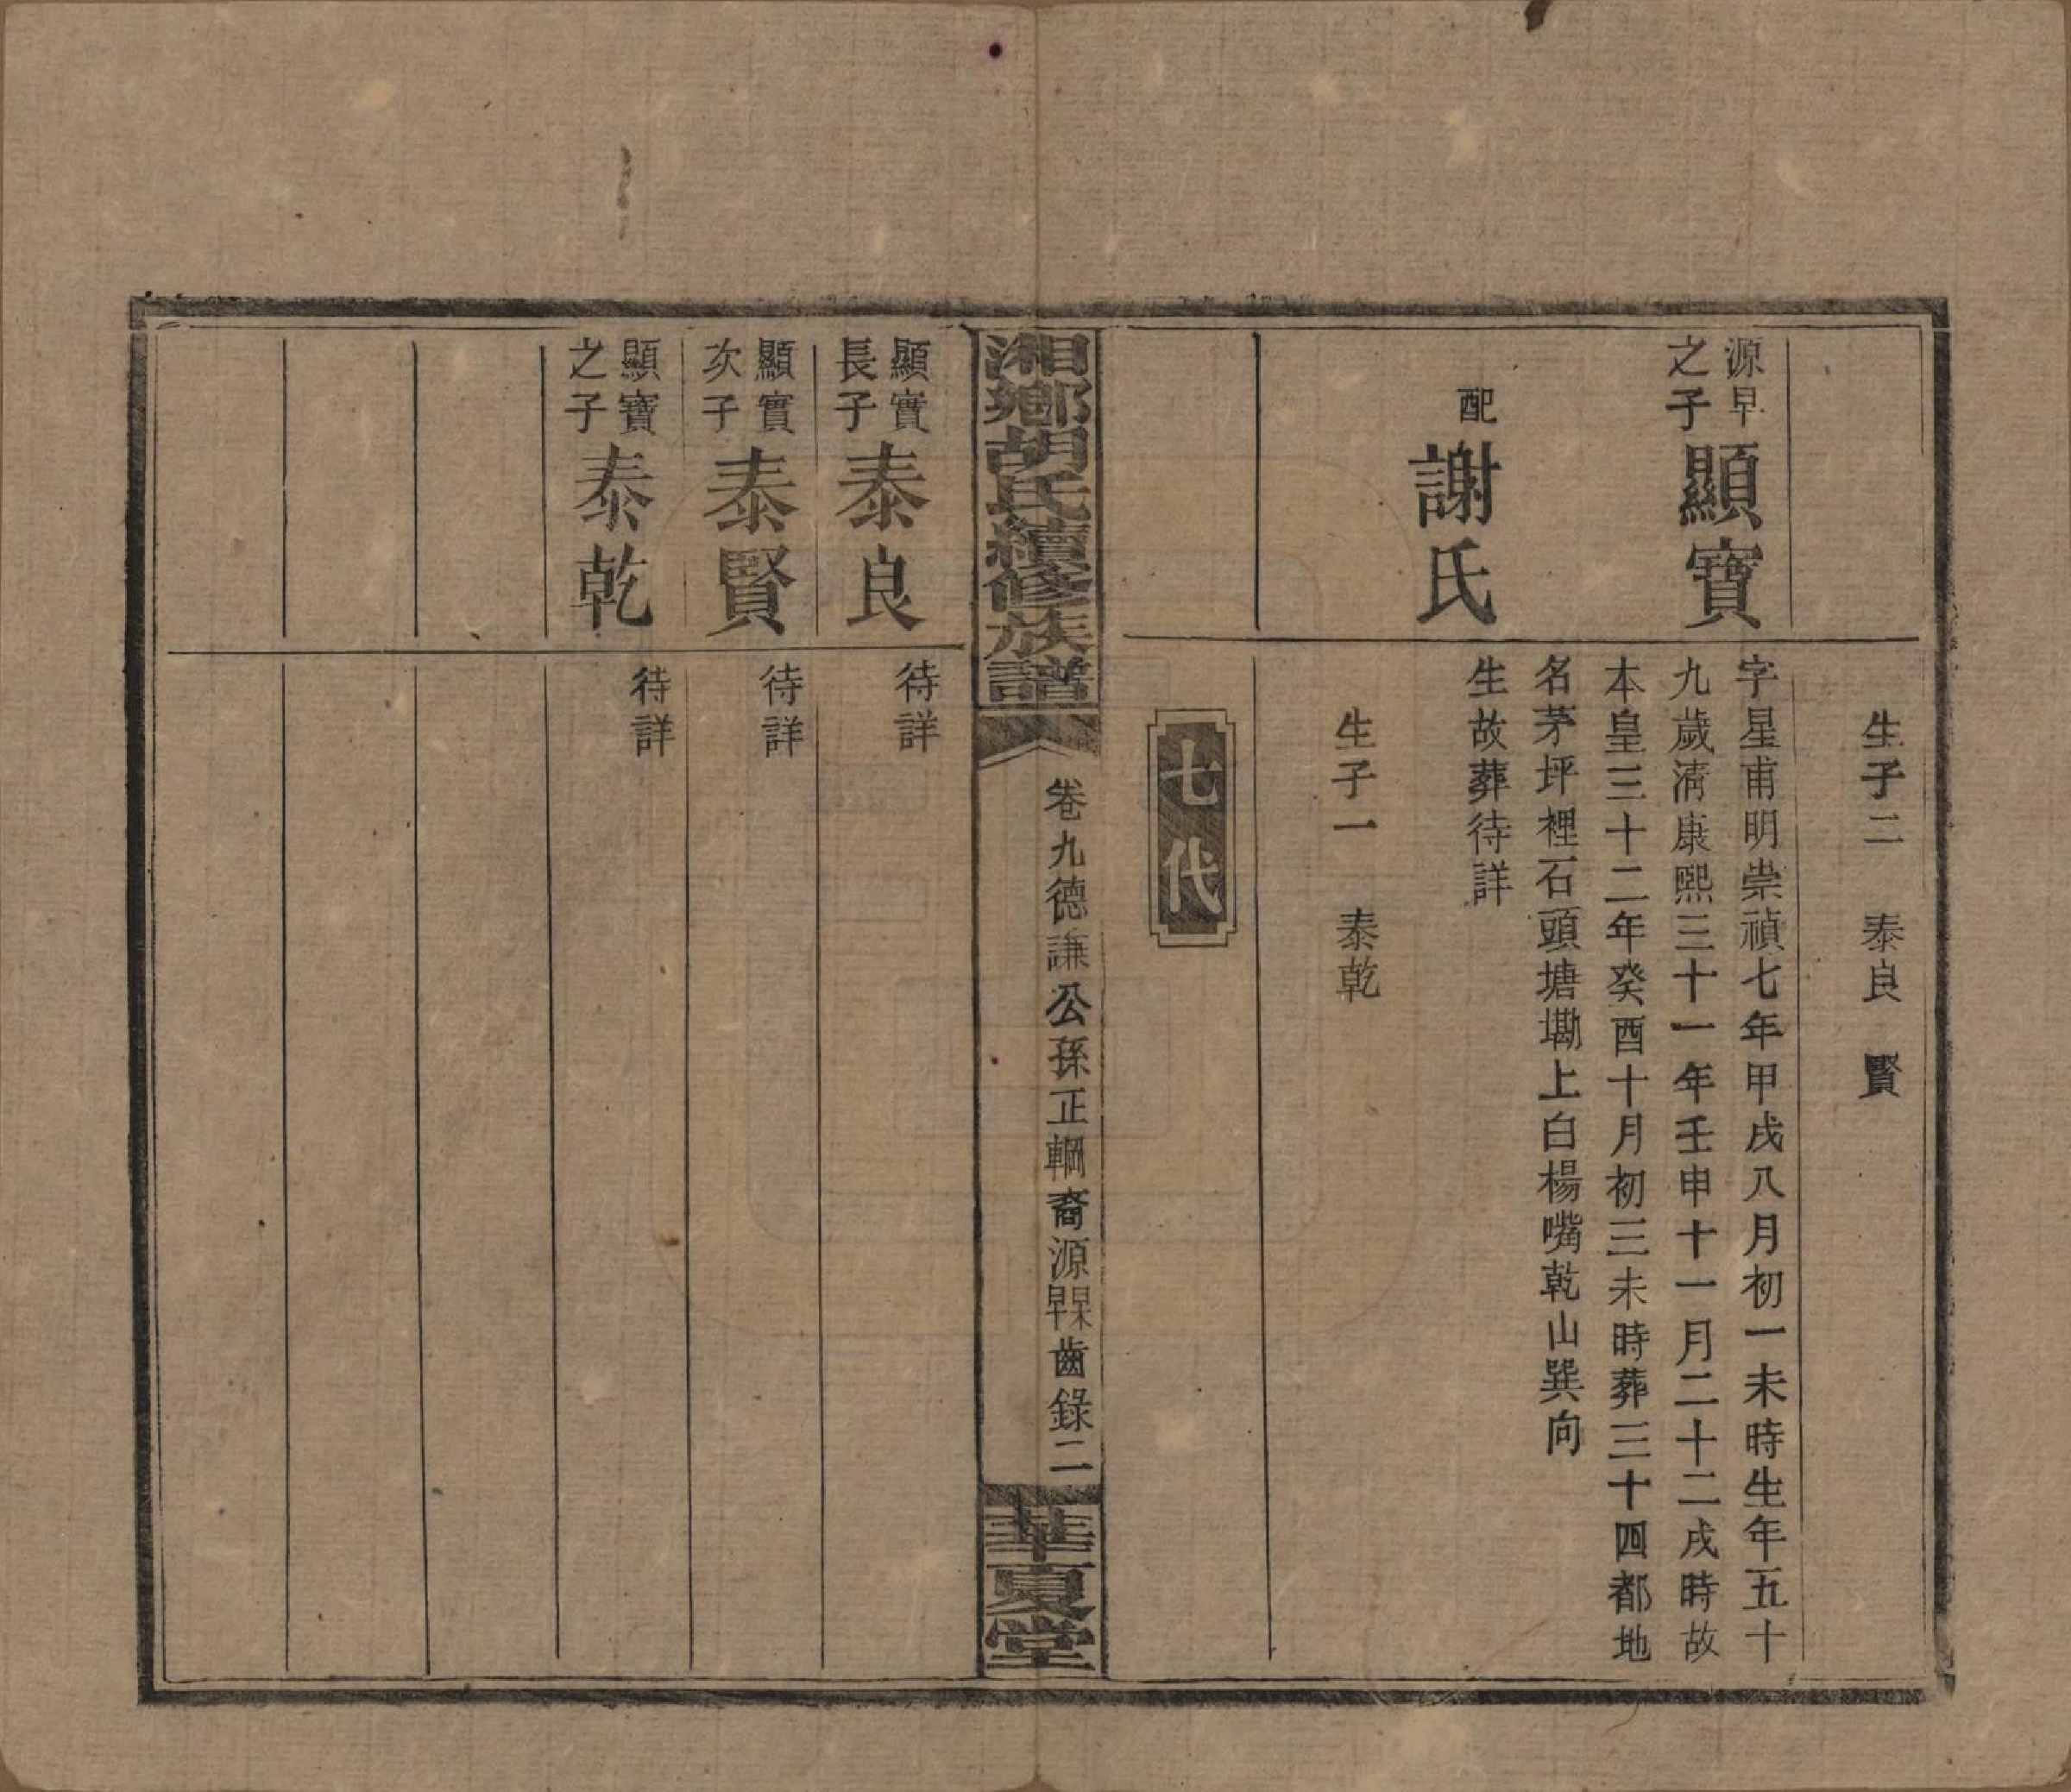 生子二　泰良　賢
源早
之子
顯寶
字星甫明崇禎七年甲戌八月初一未時生年五十
九歲清康熙三十一年壬申十一月二十二戌時故
本皇三十二年癸酉十月初三未時葬三十四都地
名茅坪裡石頭塘墈上白楊嘴乾山巽向
配
謝氏
生故葬待詳
生子一　泰乾
七代
湘鄉胡氏續修族譜
卷九德謙公孫正輞裔源早杲齒錄二
華夏堂
顯實
長子
泰良
待詳
顯實
次子
泰賢
待詳
顯寶
之子
泰乾
待詳